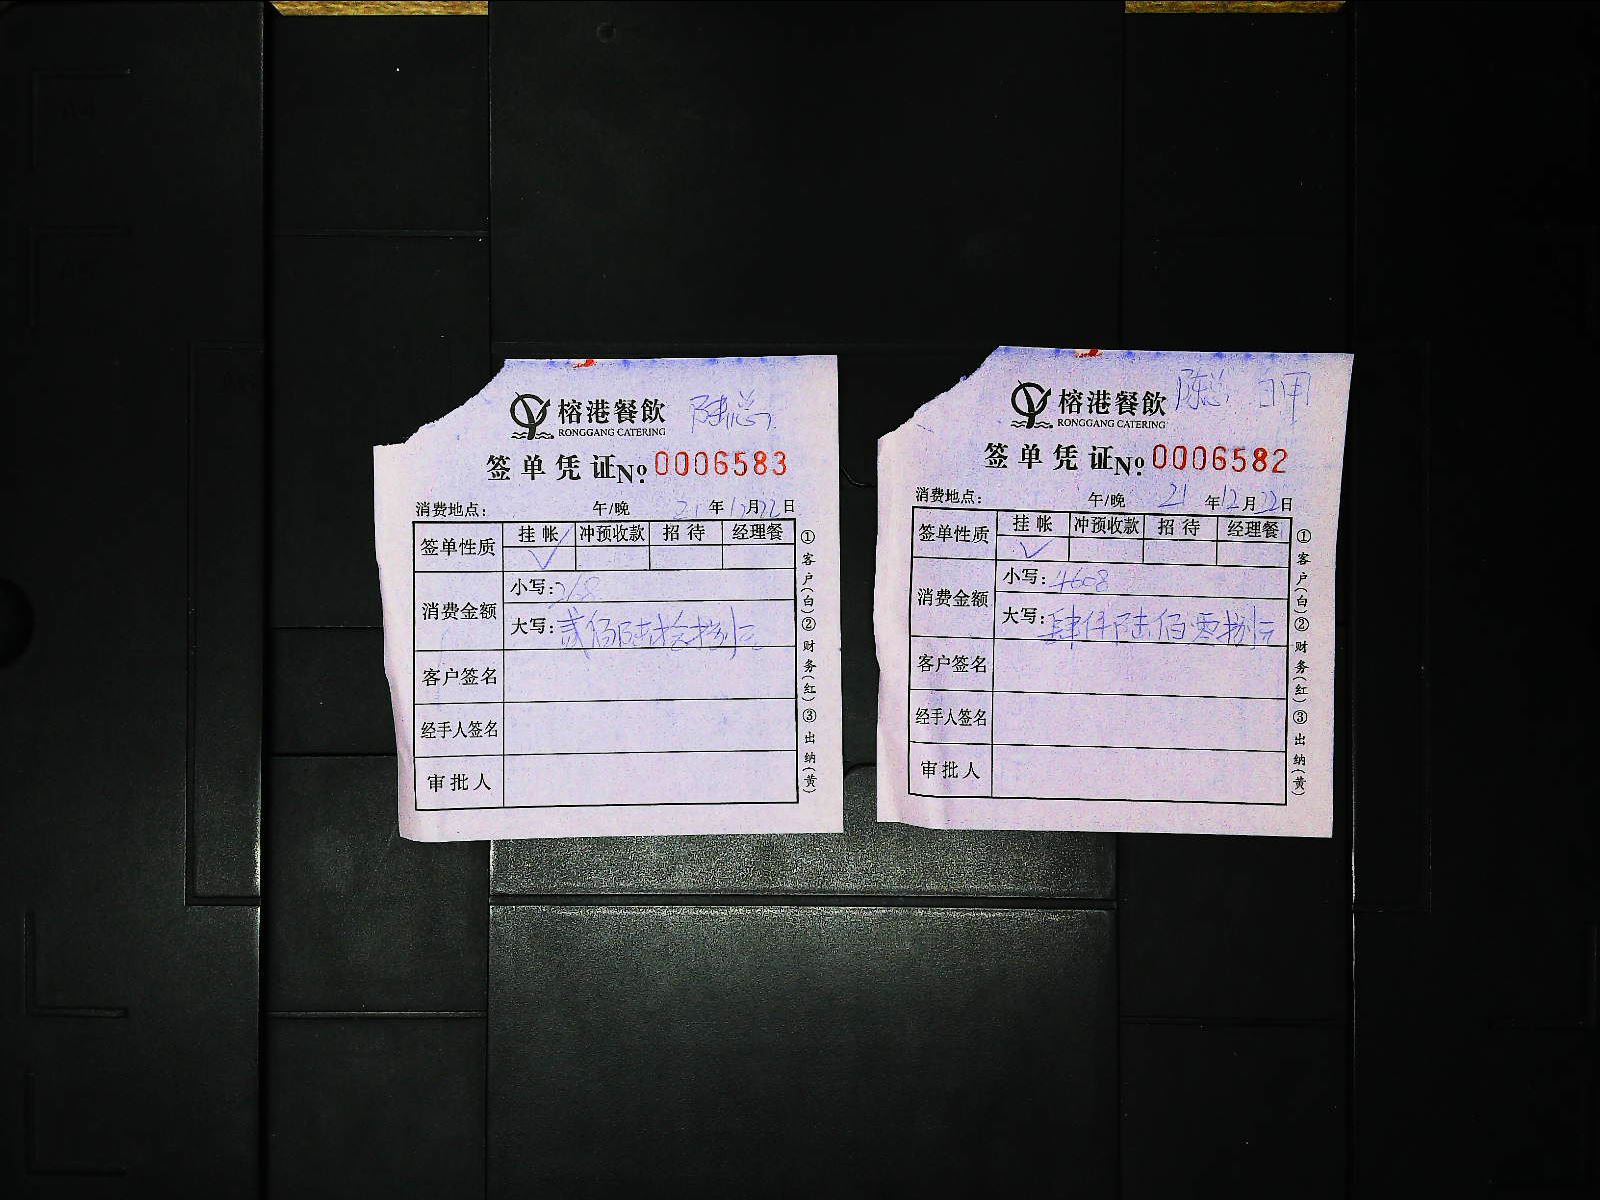 榕港餐飲 陈总
RONGGANG CATERING
签单凭证 №0006583
消费地点: 午/晚 21年12月22日
签单性质 挂帐 冲预收款 招待 经理餐
✓
消费金额 小写:268
大写:贰佰陆拾捌元
客户签名
经手人签名
审批人
①客户(白)②财务(红)③出纳(黄)
榕港餐飲 陈总 白甲
RONGGANG CATERING
签单凭证 №0006582
消费地点: 午/晚 21年12月22日
签单性质 挂帐 冲预收款 招待 经理餐
✓
消费金额 小写:4608
大写:肆仟陆佰零捌元
客户签名
经手人签名
审批人
①客户(白)②财务(红)③出纳(黄)